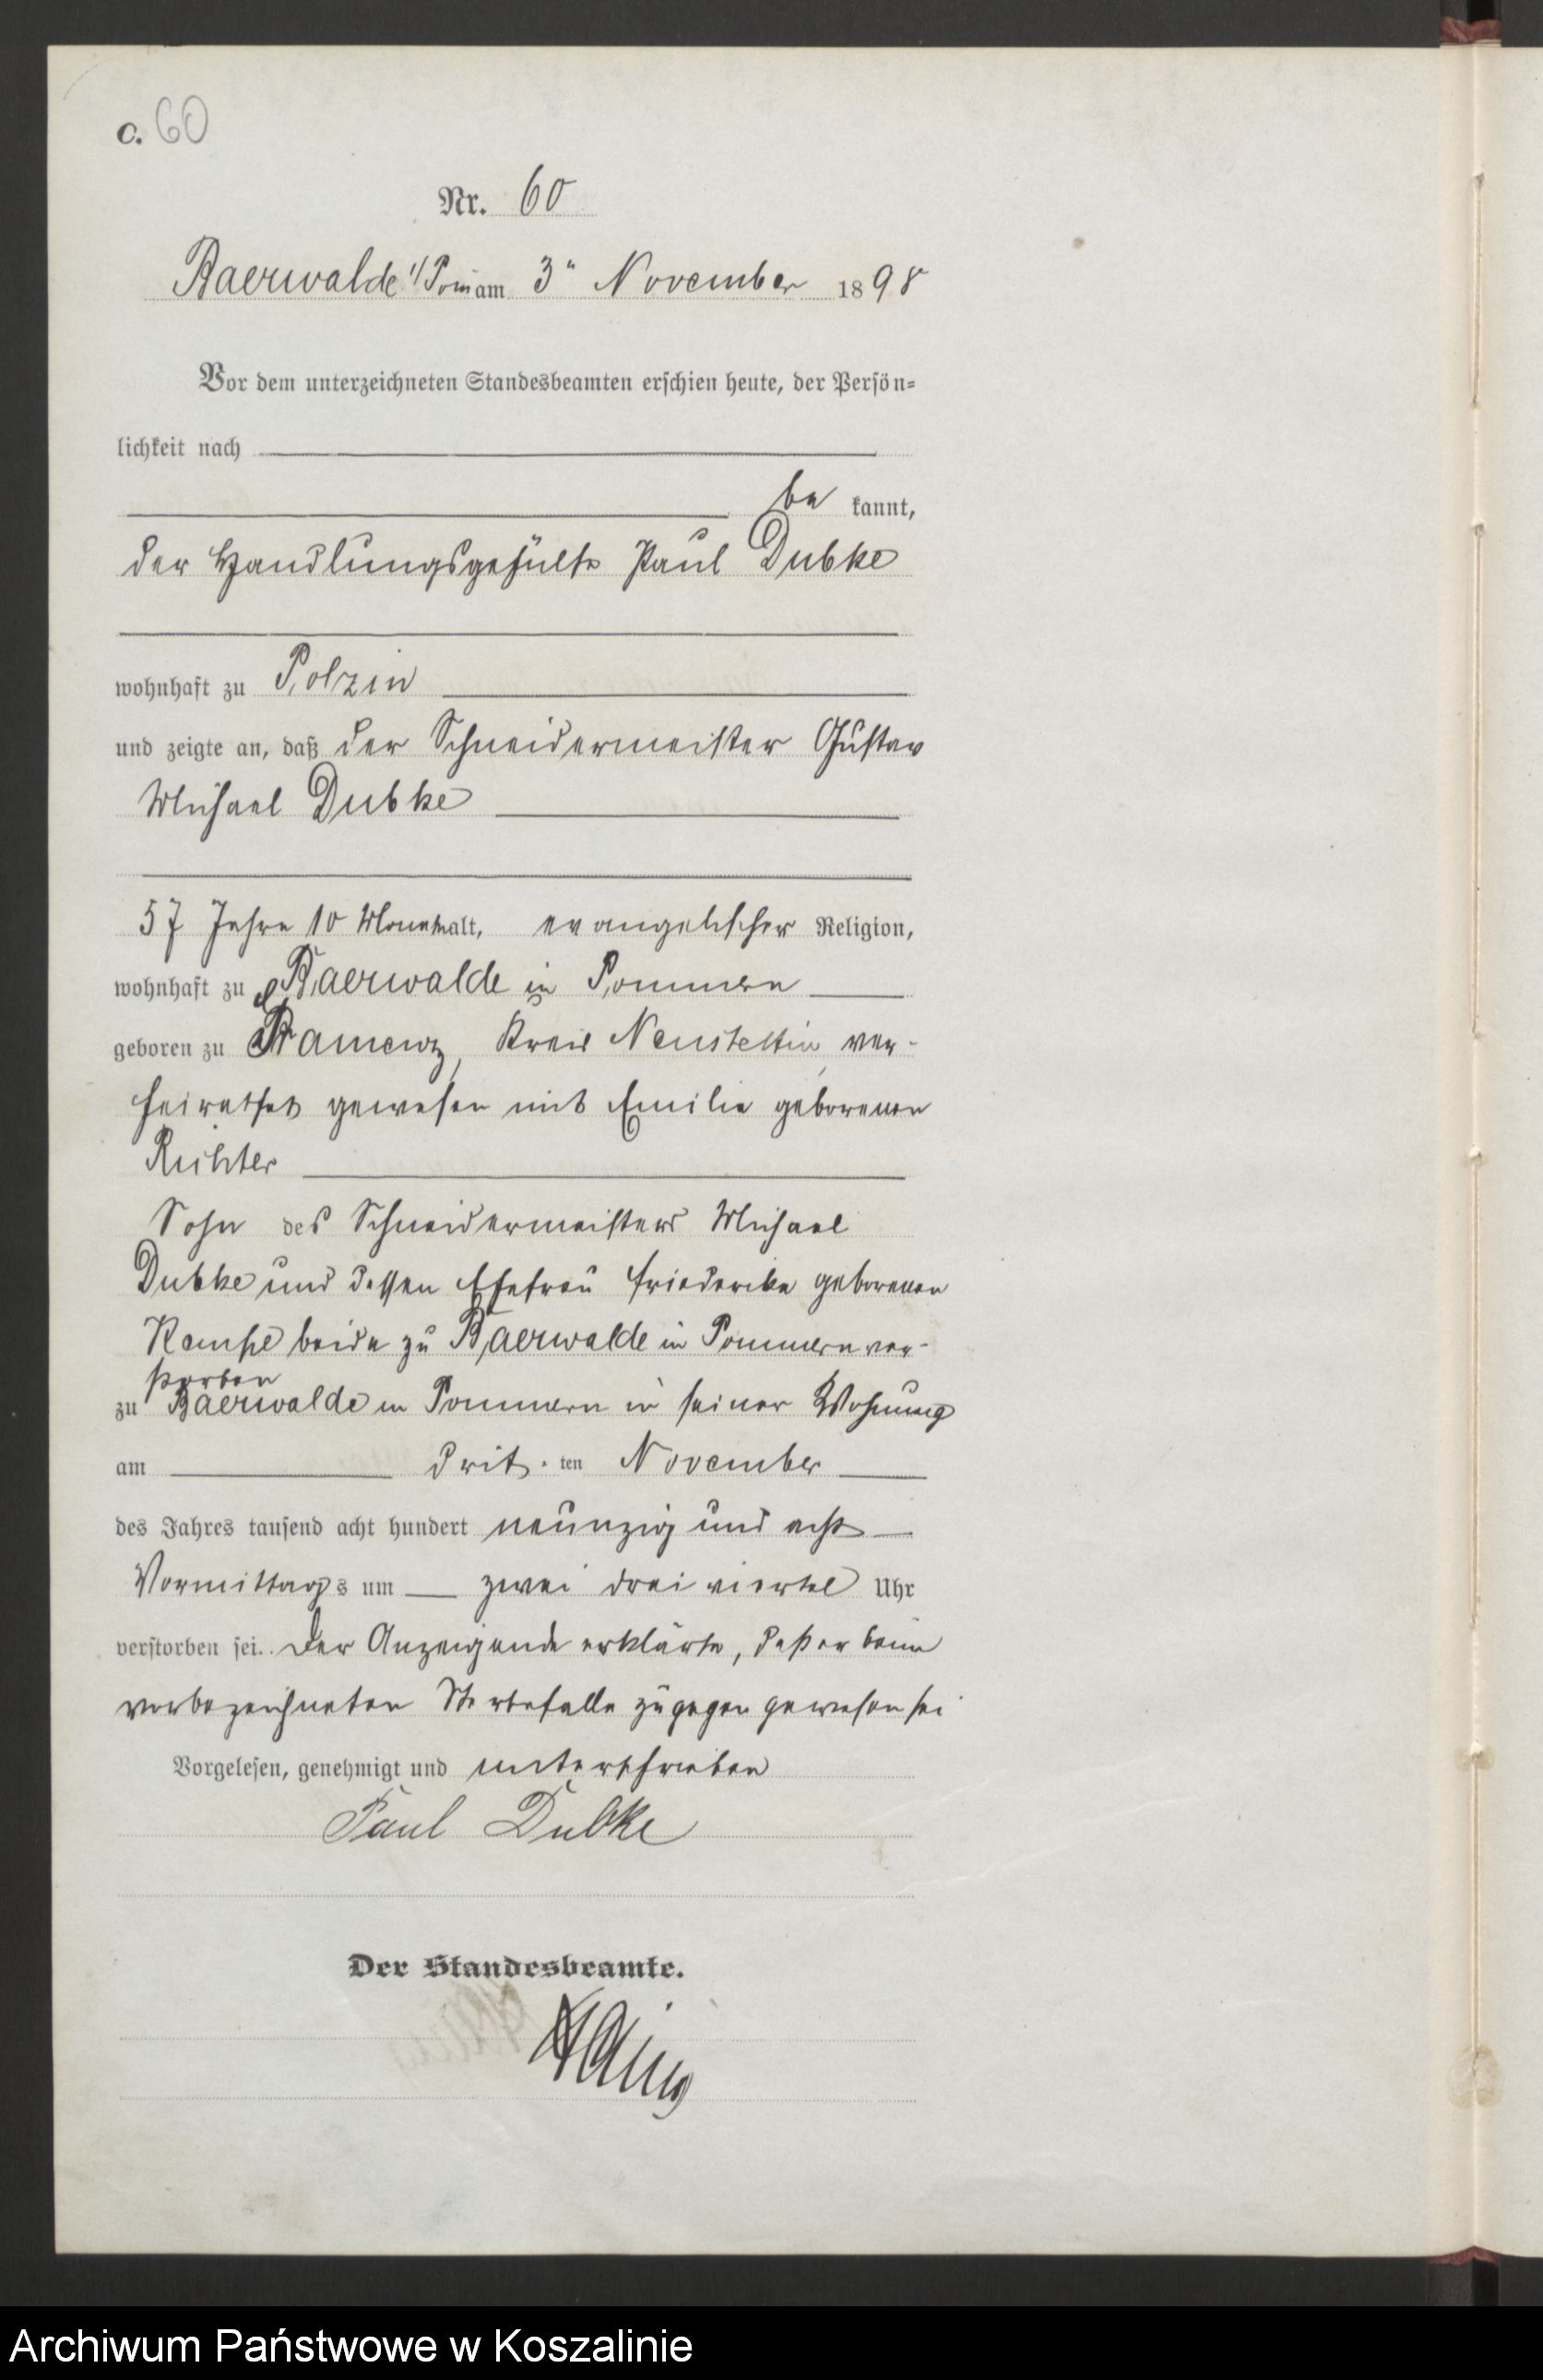 C. 60
Nr. 60
Baerwalde i/Pom am 3ten November 1898
Vor dem unterzeichneten Standesbeamten erschien heute, der Persön=
lichkeit nach
be kannt,
der Handlungsgehülfe Paul Dubke
wohnhaft zu Polzin
und zeigte an, daß der Schneidermeister Gustav
Michael Dubke
57 Jahre 10 Monate alt, evangelischer Religion,
wohnhaft zu Baerwalde in Pommern
geboren zu Ramenz, Kreis Neustettin, ver-
heirathet gewesen mit Emilie geborenen
Richter
Sohn des Schneidermeisters Michael
Dubke und dessen Ehefrau Friederike geborenen
beide zu Baerwalde in Pommern ver-
storben
zu Baerwalde in Pommern in seiner Wohnung
am drit-ten November
des Jahres tausend acht hundert neunzig und acht
Vormittags um zwei drei viertel Uhr
verstorben sei. Der Anzeigende erklärte, daß er beim
vorbezeichneten Sterbefalle zugegen gewesen sei
Vorgelesen, genehmigt und unterschrieben
Paul Dubke
Der Standesbeamte.
Archiwum Państwowe w Koszalinie